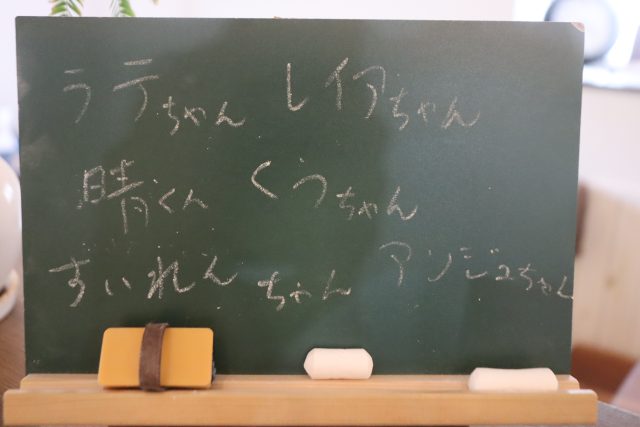 ラテちゃん レイアちゃん
晴くん くうちゃん
すいれんちゃん アンジュちゃん